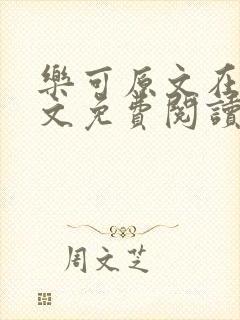 樂可原文在
文免費閱讀
周文芝